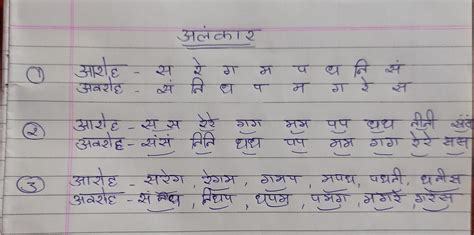 अलंकार
① आरोह - स रे ग म प ध नि सं
अवरोह - सं नि ध प म ग रे स
② आरोह - स स रेरे गग मम पप धध नीनी संसं
अवरोह - संसं निनि धध पप मम गग रेरे सस
③ आरोह - सरेग, रेगम, गमप, मपध, पधनी, धनीस
अवरोह - सं निध, निधप, धपम, पमग, मगरे, गरेस